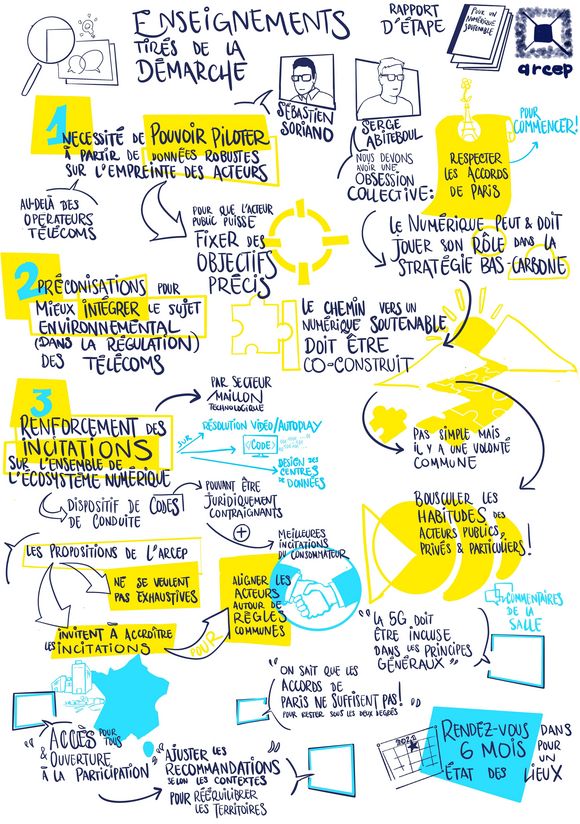 ENSEIGNEMENTS
TIRÉS DE LA
DÉMARCHE
RAPPORT
D'ÉTAPE
POUR UN
NUMÉRIQUE
SOUTENABLE
arcep
SÉBASTIEN
SORIANO
SERGE
ABITEBOUL
1
NECESSITÉ DE POUVOIR PILOTER
À PARTIR DE DONNÉES ROBUSTES
SUR L'EMPREINTE DES ACTEURS
AU-DELÀ DES
OPERATEURS
TÉLÉCOMS
POUR QUE L'ACTEUR
PUBLIC PUISSE
FIXER DES
OBJECTIFS
PRÉCIS
NOUS DEVONS
AVOIR UNE
OBSESSION
COLLECTIVE:
RESPECTER
LES ACCORDS
DE PARIS
POUR
COMMENCER!
LE NUMÉRIQUE PEUT & DOIT
JOUER SON RÔLE DANS LA
STRATÉGIE BAS-CARBONE
2
PRÉCONISATIONS POUR
MIEUX INTÉGRER LE SUJET
ENVIRONNEMENTAL
(DANS LA RÉGULATION)
DES TÉLÉCOMS
LE CHEMIN VERS UN
NUMÉRIQUE SOUTENABLE
DOIT ÊTRE
CO-CONSTRUIT
PAS SIMPLE MAIS
IL Y A UNE VOLONTÉ
COMMUNE
3
RENFORCEMENT DES
INCITATIONS
SUR L'ENSEMBLE DE
L'ÉCOSYSTÈME NUMÉRIQUE
PAR SECTEUR
/MAILLON
TECHNOLOGIQUE
SUR
RÉSOLUTION VIDÉO/AUTOPLAY
<CODE>
DESIGN DES
CENTRES
DE DONNÉES
DISPOSITIF DE CODES
DE CONDUITE
POUVANT ÊTRE
JURIDIQUEMENT
CONTRAIGNANTS
+
MEILLEURES
INCITATIONS
DU CONSOMMATEUR
BOUSCULER LES
HABITUDES DES
ACTEURS PUBLICS,
PRIVÉS & PARTICULIERS!
LES PROPOSITIONS DE L'ARCEP
NE SE VEULENT
PAS EXHAUSTIVES
INVITENT À ACCROÎTRE
LES INCITATIONS
POUR
ALIGNER LES
ACTEURS
AUTOUR DE
RÈGLES
COMMUNES
COMMENTAIRES
DE LA
SALLE
"LA 5G DOIT
ÊTRE INCLUSE
DANS LES PRINCIPES
GÉNÉRAUX"
"ON SAIT QUE LES
ACCORDS DE
PARIS NE SUFFISENT PAS!"
POUR RESTER SOUS LES DEUX DEGRÉS
"ACCÈS POUR TOUS
& OUVERTURE
À LA PARTICIPATION"
"AJUSTER LES
RECOMMANDATIONS
SELON LES CONTEXTES
POUR RÉÉQUILIBRER
LES TERRITOIRES
RENDEZ-VOUS DANS
6 MOIS POUR
UN
ÉTAT DES LIEUX